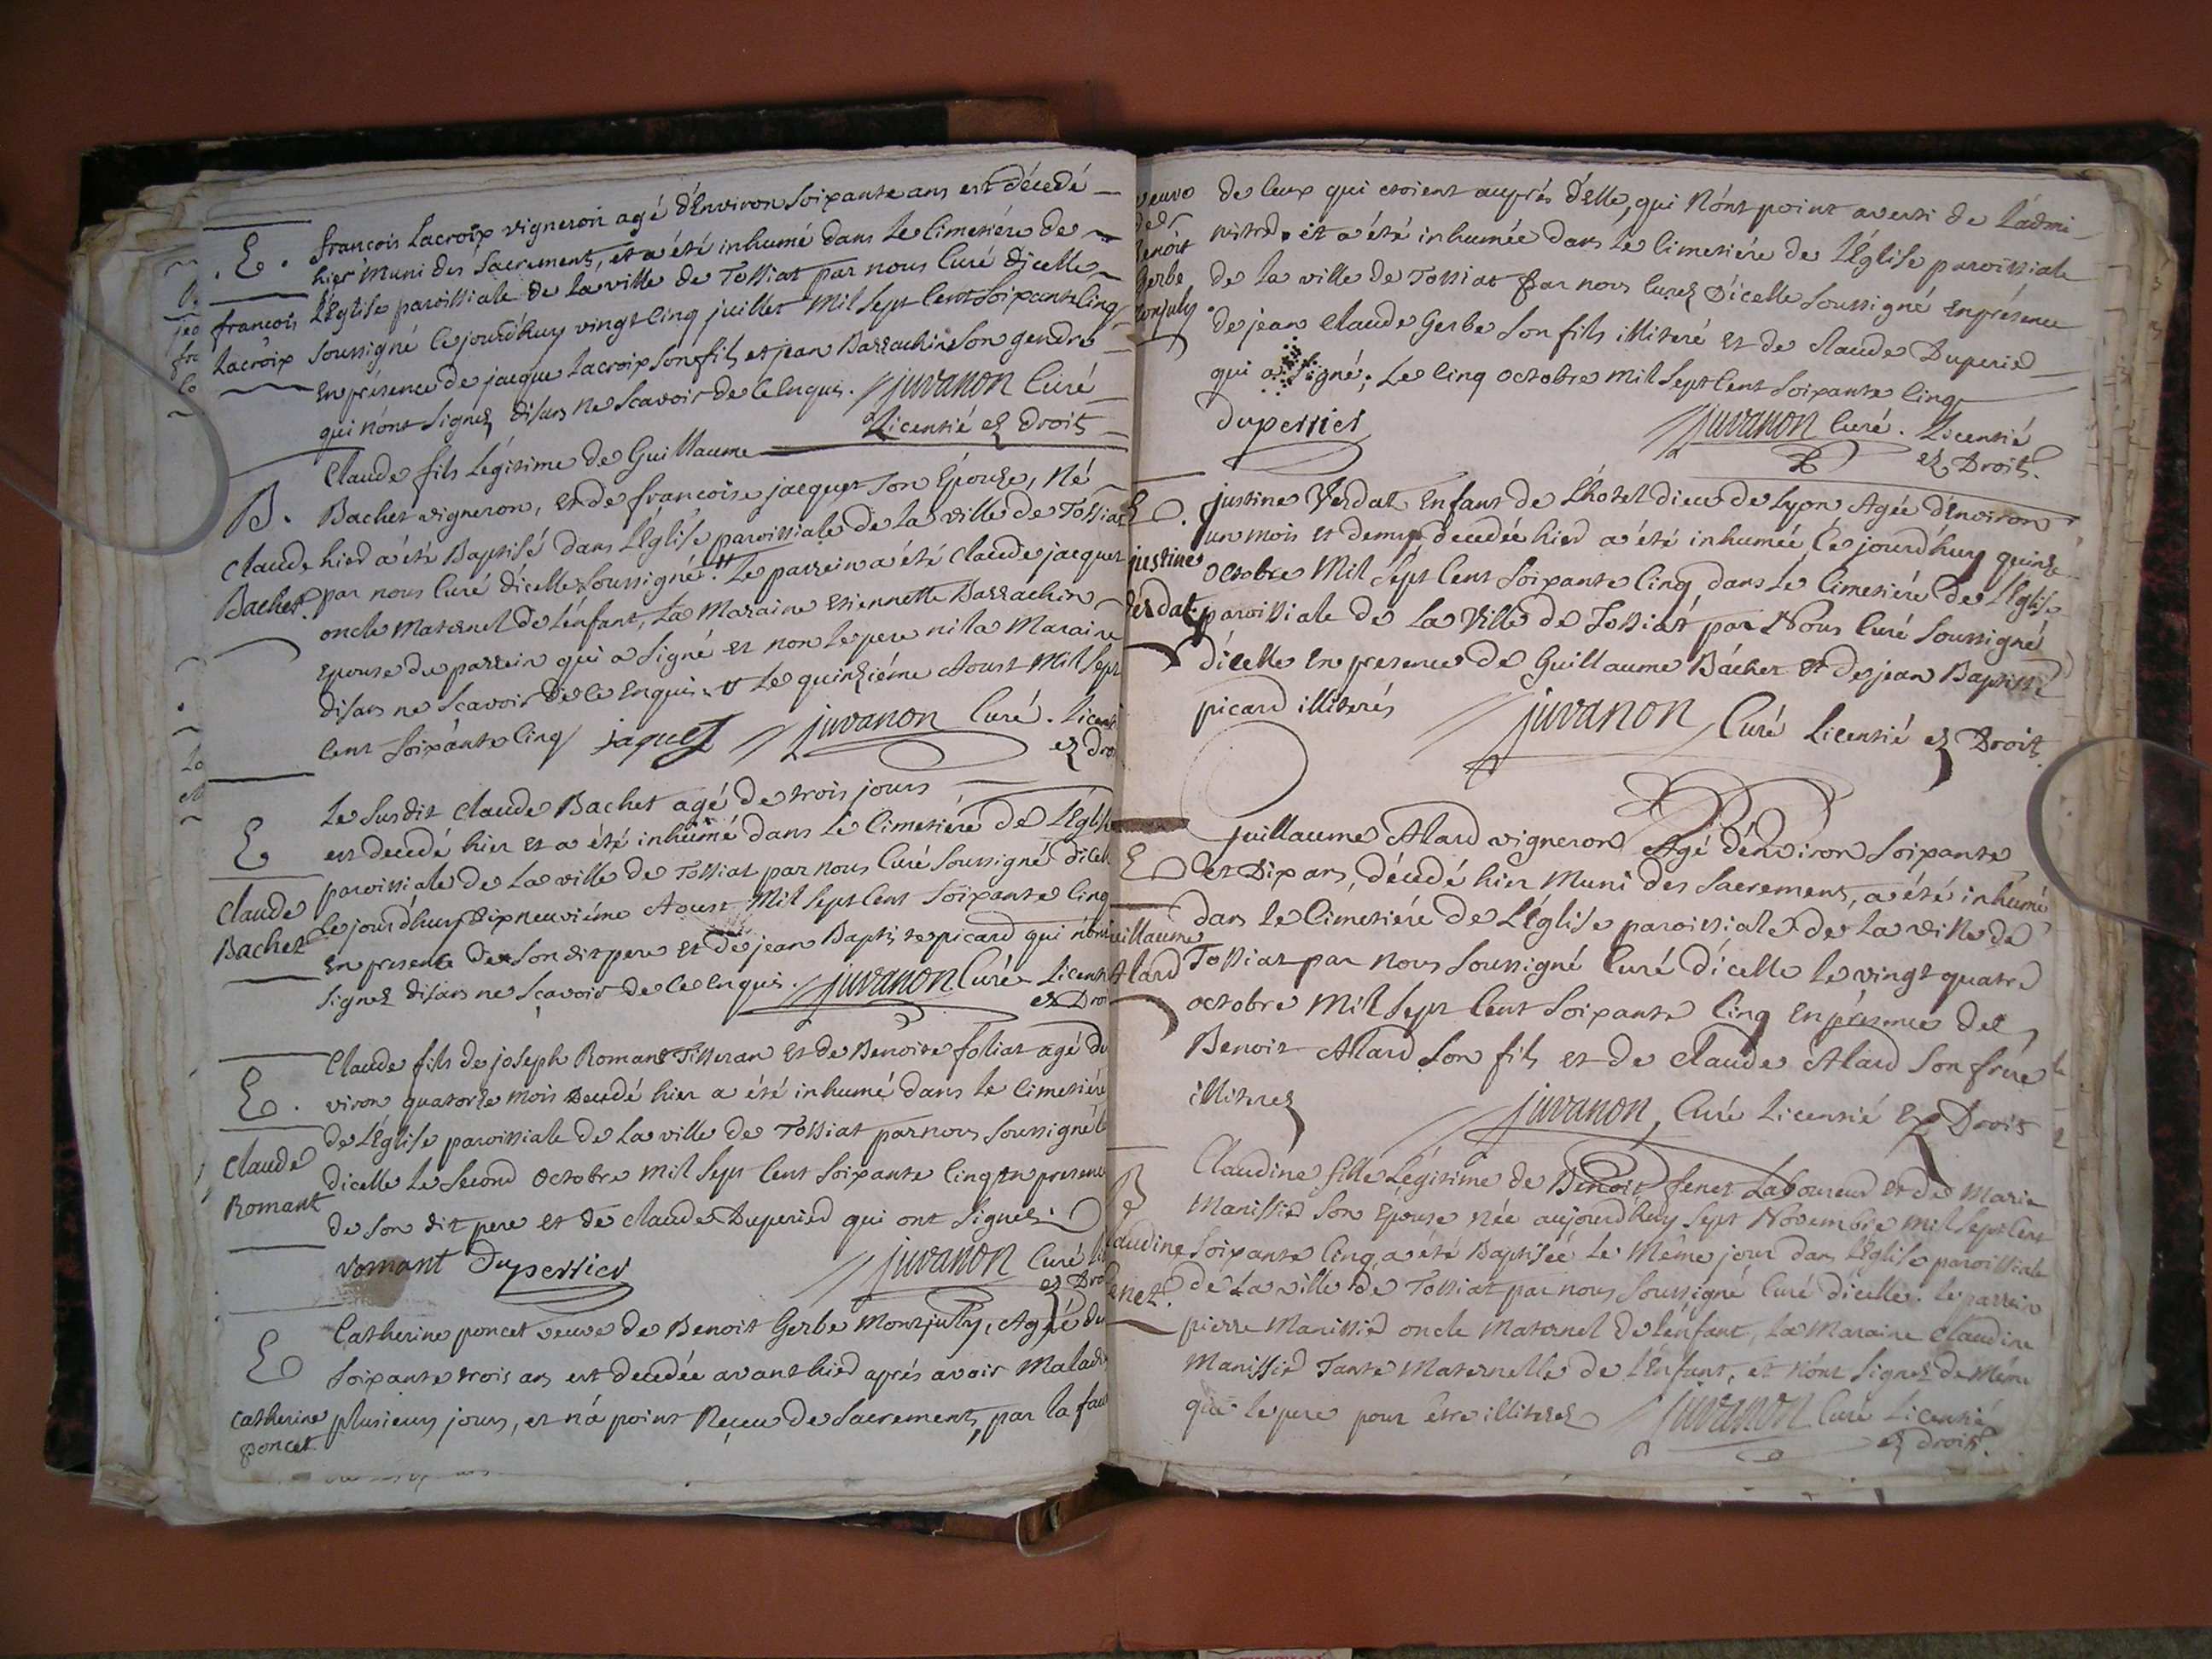 françois Lacroix vigneron agé d'Environ Soixante ans est décedé
.E. hier Muni des Sacrements, et a été inhumé dans Le Cimetiére de
L'Eglise paroissiale de La ville de Tossiat par nous Curé d'icelle
françois Lacroix
Soussigné Cejourd'huy vingt Cinq juillet Mil Sept Cent Soixante Cinq
En présence de jacque Lacroix Son fils et jean Barrachin Son gendre
qui n'ont Signez disans ne Scavoir de Ce Enquis. juvanon Curé
Licentié ez Droits
Claude fils Légitime de Guillaume
B. Bachet vigneron, et de françoise jacquet Son Epouze, Né
Claude Bachet
hier a été Baptisé dans L'Eglise paroissiale de La ville de Tossiat
par nous Curé d'icelle Soussigné. Le parrein a été Claude jacquet
oncle Maternel de L'enfant, La Maraine Etiennette Barrachin
Epouse du parrein qui a Signé et non Le pere ni la Maraine
disans ne Scavoir de Ce Enquis. Le quinziéme Aoust Mil Sept
Cent Soixante Cinq jaquet juvanon Curé. Licenti
ez Dro
Le Susdit Claude Bachet agé de trois jours
E est decedé hier et a été inhumé dans Le Cimetiére de L'Eglise
paroissiale de La ville de Tossiat par nous Curé Soussigné d'icelle
Claude Bachet
Cejourd'huy Dix neuviéme Aoust Mil Sept Cent Soixante Cinq
En presence de Son dit pere et de jean Baptiste picard qui n'ont
Signez disans ne Sçavoir de Ce Enquis. juvanon Curé Licenti
ez Droi
Claude fils de joseph Romant Tisseran et de Benoite folliat agé d'e
E. viron quatorze mois Decedé hier a été inhumé dans Le Cimetiére
de L'Eglise paroissiale de La ville de Tossiat par nous Soussigné
Claude Romant
d'icelle Le Second Octobre Mil Sept Cent Soixante Cinq En presence
de Son dit pere et de Claude Duperier qui ont Signez.
romant Duperrier juvanon Curé
ez Dro
Catherine poncet veuve de Benoit Gerbe Montjuly, Agée d'e
E Soixante trois ans est decedée avant hier aprés avoir Malade
Catherine poncet
plusieurs jours, et n'a point Reçeu de Sacrements, par la faut
veuve de Benoit Gerbe Monjuly
de Ceux qui etoient auprés d'Elle, qui N'ont point averti de L'admi
nistrer. et a été inhumée dans Le Cimetiére de L'Eglise paroissiale
de La ville de Tossiat par nous Curez d'icelle Soussigné En présence
de jean Claude Gerbe Son fils illiteré et de Claude Duperier
qui a Signé: Le Cinq Octobre Mil Sept Cent Soixante Cinq
duperrier juvanon Curé. Licentié
ez Droits.
E. justine Verdat Enfant de L'hotel dieu de Lyon Agée d'Environ
un mois et demy decedée hier a été inhumée Cejourd'huy quinze
justine Verdat
Octobre Mil Sept Cent Soixante Cinq, dans Le Cimetiére de L'Eglise
paroissiale de La Ville de Tossiat par Nous Curé Soussigné
d'icelle En presence de Guillaume Bachet et de jean Baptiste
picard illiterés juvanon Curé Licentié ez Droits.
Guillaume Alard vigneron Agé d'Environ Soixante
E et Dix ans, décedé hier Muni des Sacrements, a été inhumé
dans Le Cimetiére de L'Eglise paroissiale de La ville de
uillaume Alard
Tossiat par nous Soussigné Curé d'icelle Le vingt quatre
octobre Mil Sept Cent Soixante Cinq En présence de
Benoit Alard Son fils et de Claude Alard Son frére
illiterez juvanon, Curé Licentié Ez Droits
B Claudine fille Légitime de Benoit fenet Laboureur et de Marie
Manissier Son Epouse née aujourd'huy Sept Novembre Mil Sept Cent
laudine enet.
Soixante Cinq, a été Baptisée Le Même jour dans L'Eglise paroissiale
de La ville de Tossiat par nous Soussigné Curé d'icelle. Le parrein
pierre Manissier oncle Maternel de L'enfant, La Maraine Claudine
Manissier Tante Maternelle de L'Enfant, et n'ont Signez de Même
que le pere pour être illiterez juvanon Curé Licentié
ez droits.